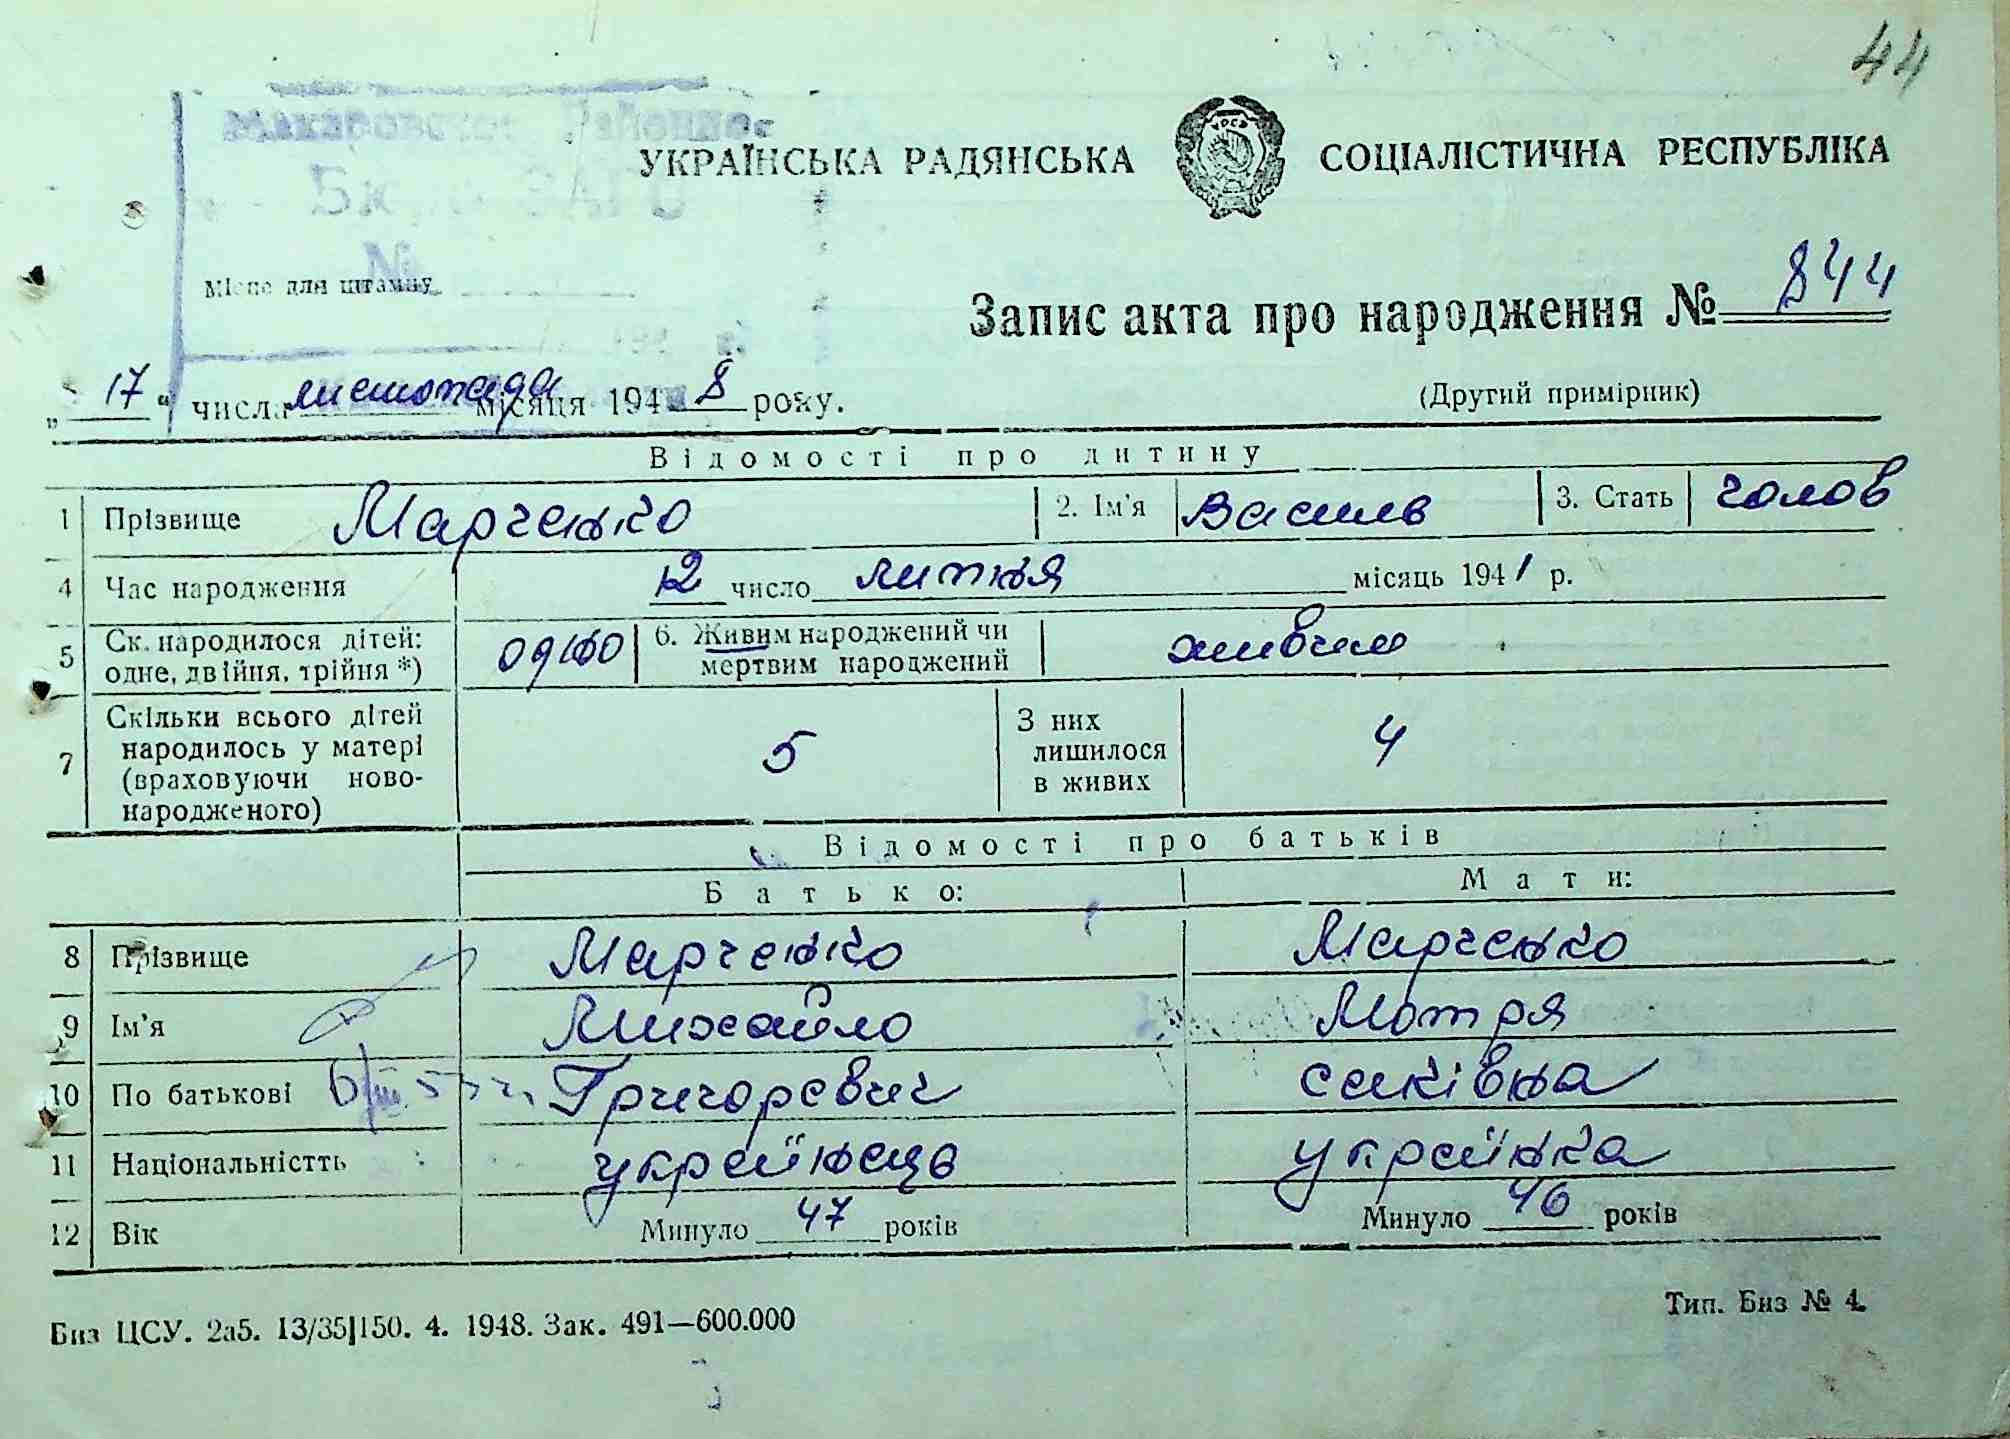 44
Макаровское Районное
Бюро ЗАГС
№
УКРАЇНСЬКА РАДЯНСЬКА СОЦІАЛІСТИЧНА РЕСПУБЛІКА
Місце для штампу
Запис акта про народження № 844
„17“ числа листопада місяця 1948 року.
(Другий примірник)
Відомості про дитину
1 Прізвище Марченко 2. Ім'я Василь 3. Стать чолов
4 Час народження 12 число липня місяць 1941 р.
5 Ск. народилося дітей: одне, двійня, трійня *) одно 6. Живим народжений чи мертвим народжений живим
7 Скільки всього дітей народилось у матері (враховуючи ново-народженого) 5 З них лишилося в живих 4
Відомості про батьків
Батько: Мати:
8 Прізвище Марченко Марченко
9 Ім'я Михайло Мотря
10 По батькові Григоревич
11 Національністть українець українка
12 Вік Минуло 47 років Минуло 46 років
Биз ЦСУ. 2а5. 13/35|150. 4. 1948. Зак. 491—600.000
Тип. Биз № 4.